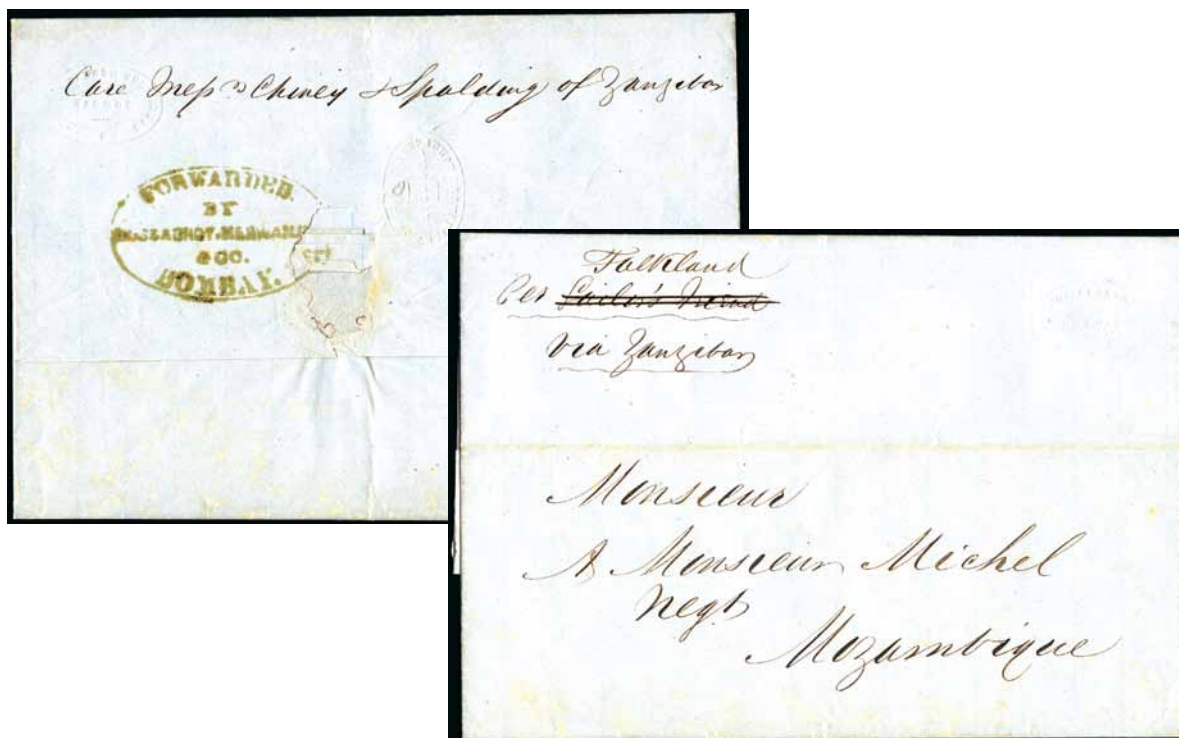 Care Mess rs Cheney & Spalding of Zanzibar
FORWARDED.
BY
& CO.
BOMBAY.
Falkland
Per Sailor's Friend
via Zanzibar
Monsieur
A Monsieur Michel
Negt
Mozambique